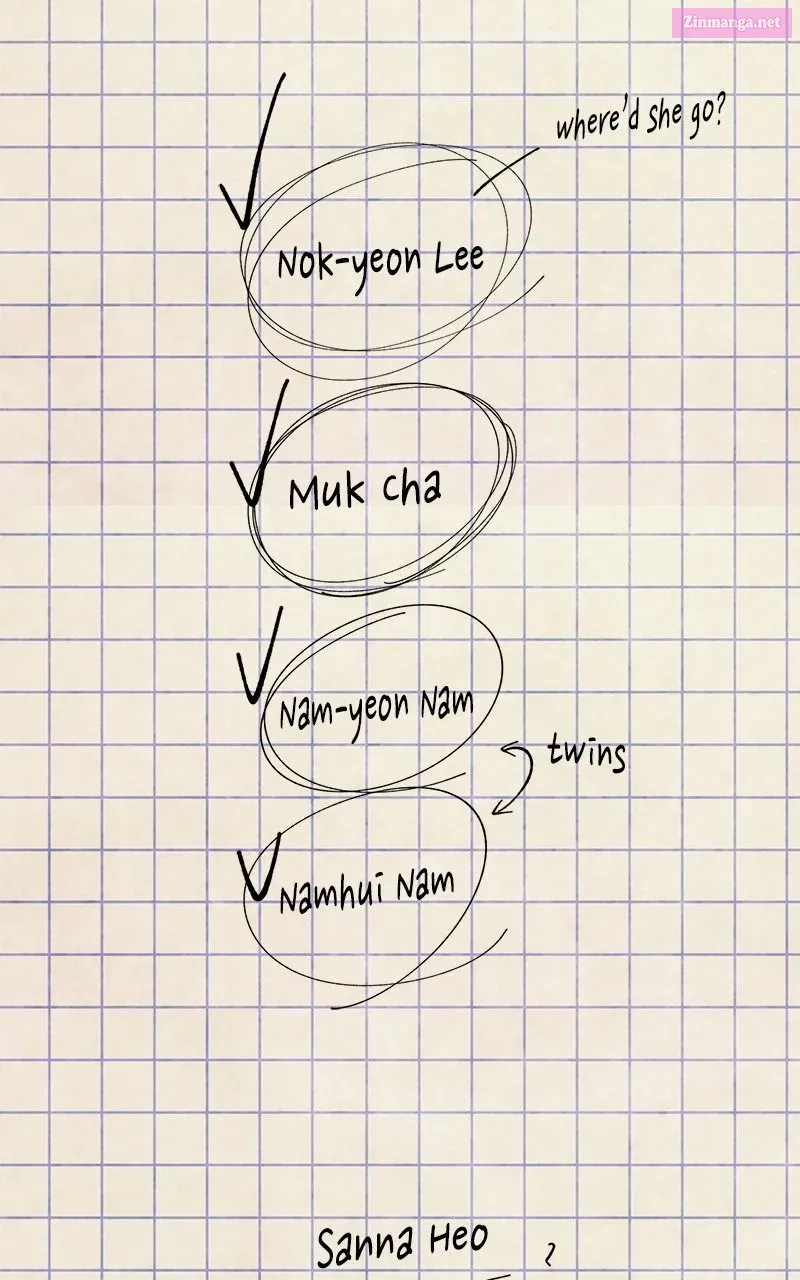 Zinmanga.net
where'd she go?
Nok-yeon Lee
Muk Cha
Nam-yeon Nam
twins
Namhui Nam
Sanna Heo
?